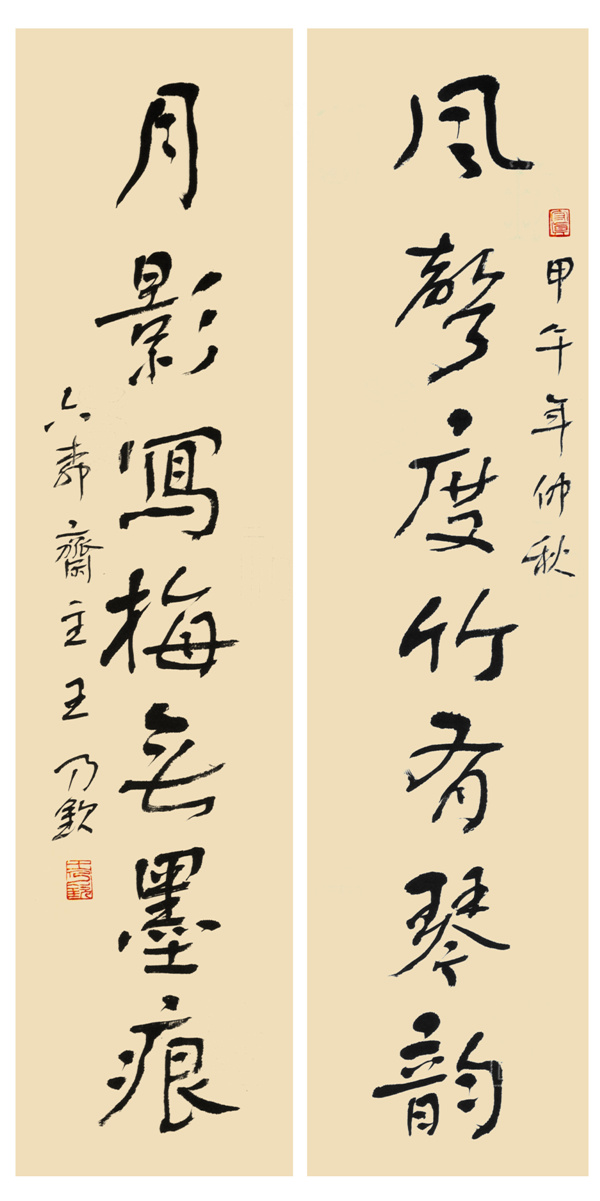 風聲度竹有琴韵
甲午年仲秋
月影寫梅無墨痕
齋主王乃欽